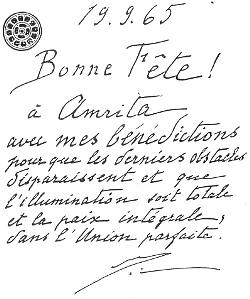 19.9.65
Bonne Fête!
à Amrita
avec mes bénédictions
pour que les derniers obstacles
disparaissent et que
l'illumination soit totale
et la paix intégrale,
dans l'Union parfaite.